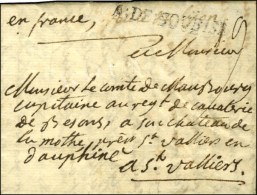 en france,
A. DE BOUR
A Monsieur
Monsieur le Comte de
capitaine au regt. de cavalerie
de Besons, a son chateau de
la mothe, près St. vallier en
dauphiné
a St. valliers.